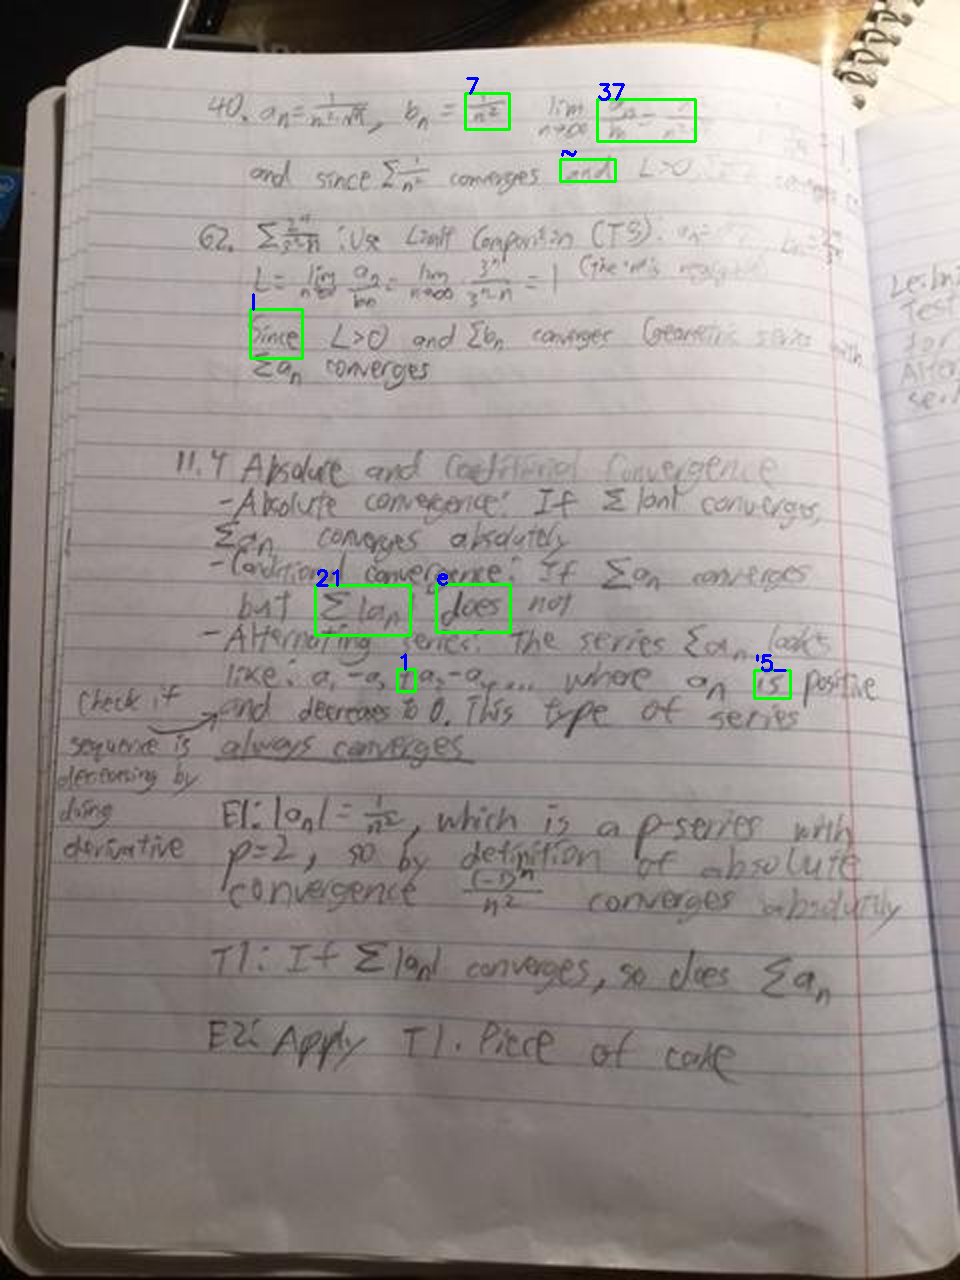 40. aₙ = 1/(n²√n), bₙ = 1/n² lim n→∞
and since Σ 1/n² converges and L>0
62. Σ : Use Limit Comparison (T5):
L = lim n→∞ aₙ/bₙ = lim n→∞ 3ⁿ/(3ⁿ-n) = 1
Since L>0 and Σbₙ converges (Geometric series with
Σaₙ converges
11.4 Absolute and Conditional Convergence
- Absolute convergence: If Σ|an| converges,
Σaₙ converges absolutely
- Conditional convergence: If Σaₙ converges
but Σ|aₙ does not
- Alternating series: The series Σaₙ looks
like: a, -a, + a₃ - a₄ ... where aₙ is positive
and decreases to 0. This type of series
always converges
Check if
sequence is
decreasing by
doing
derivative
E1: |aₙ| = 1/n², which is a p-series with
p=2, so by definition of absolute
convergence (-1)ⁿ/n² converges absolutely
T1: If Σ|aₙ| converges, so does Σaₙ
E2: Apply T1. Piece of cake
Test
for
7
37
~
21
e
1
'5_